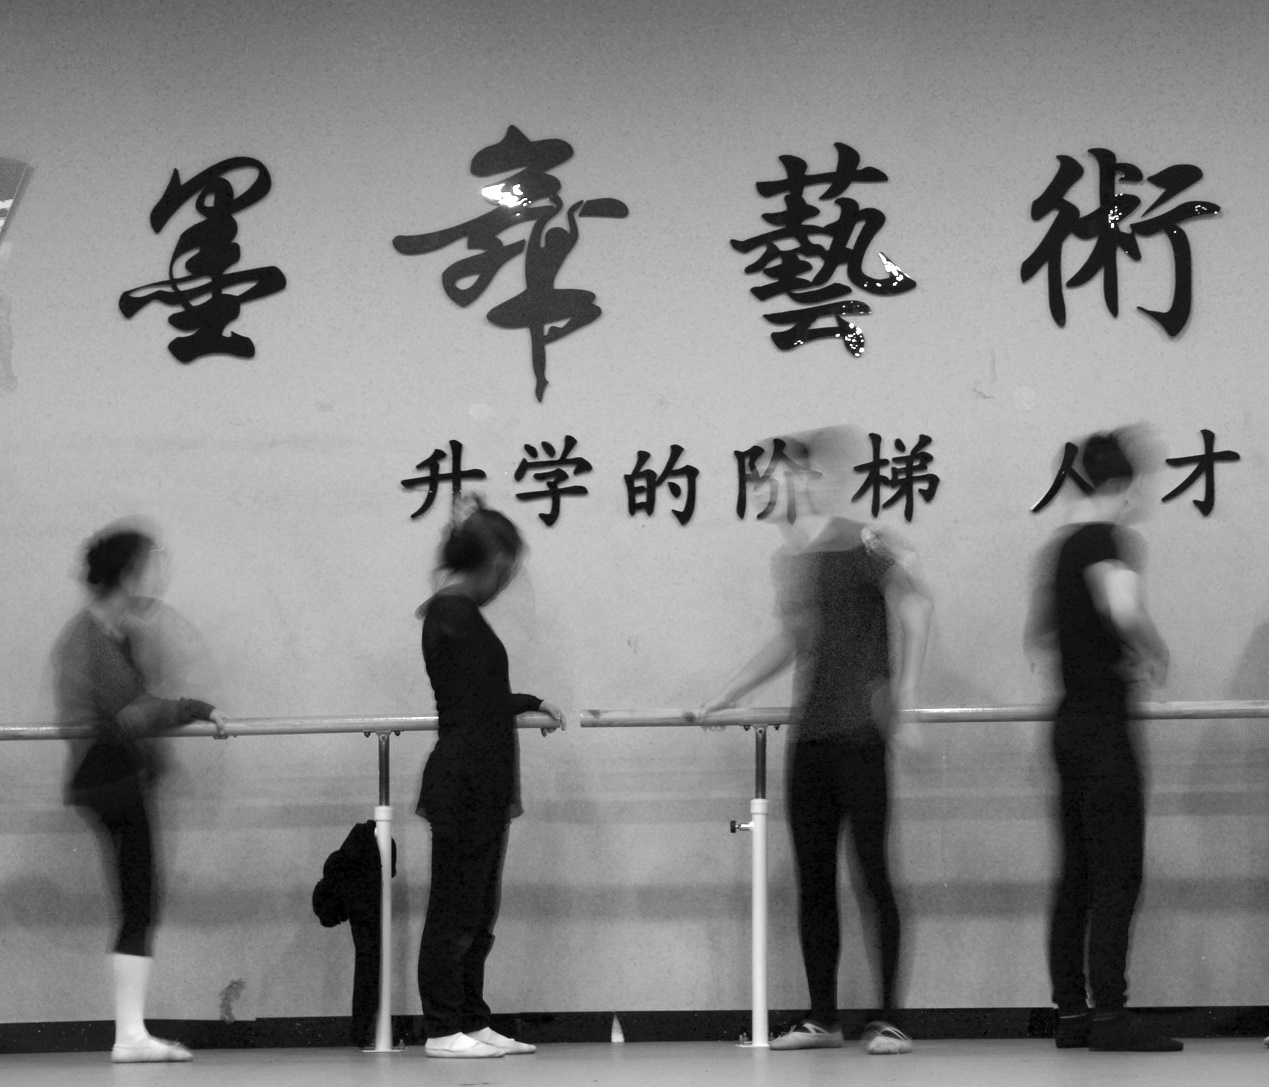 墨舞藝術
升学的阶梯 人才